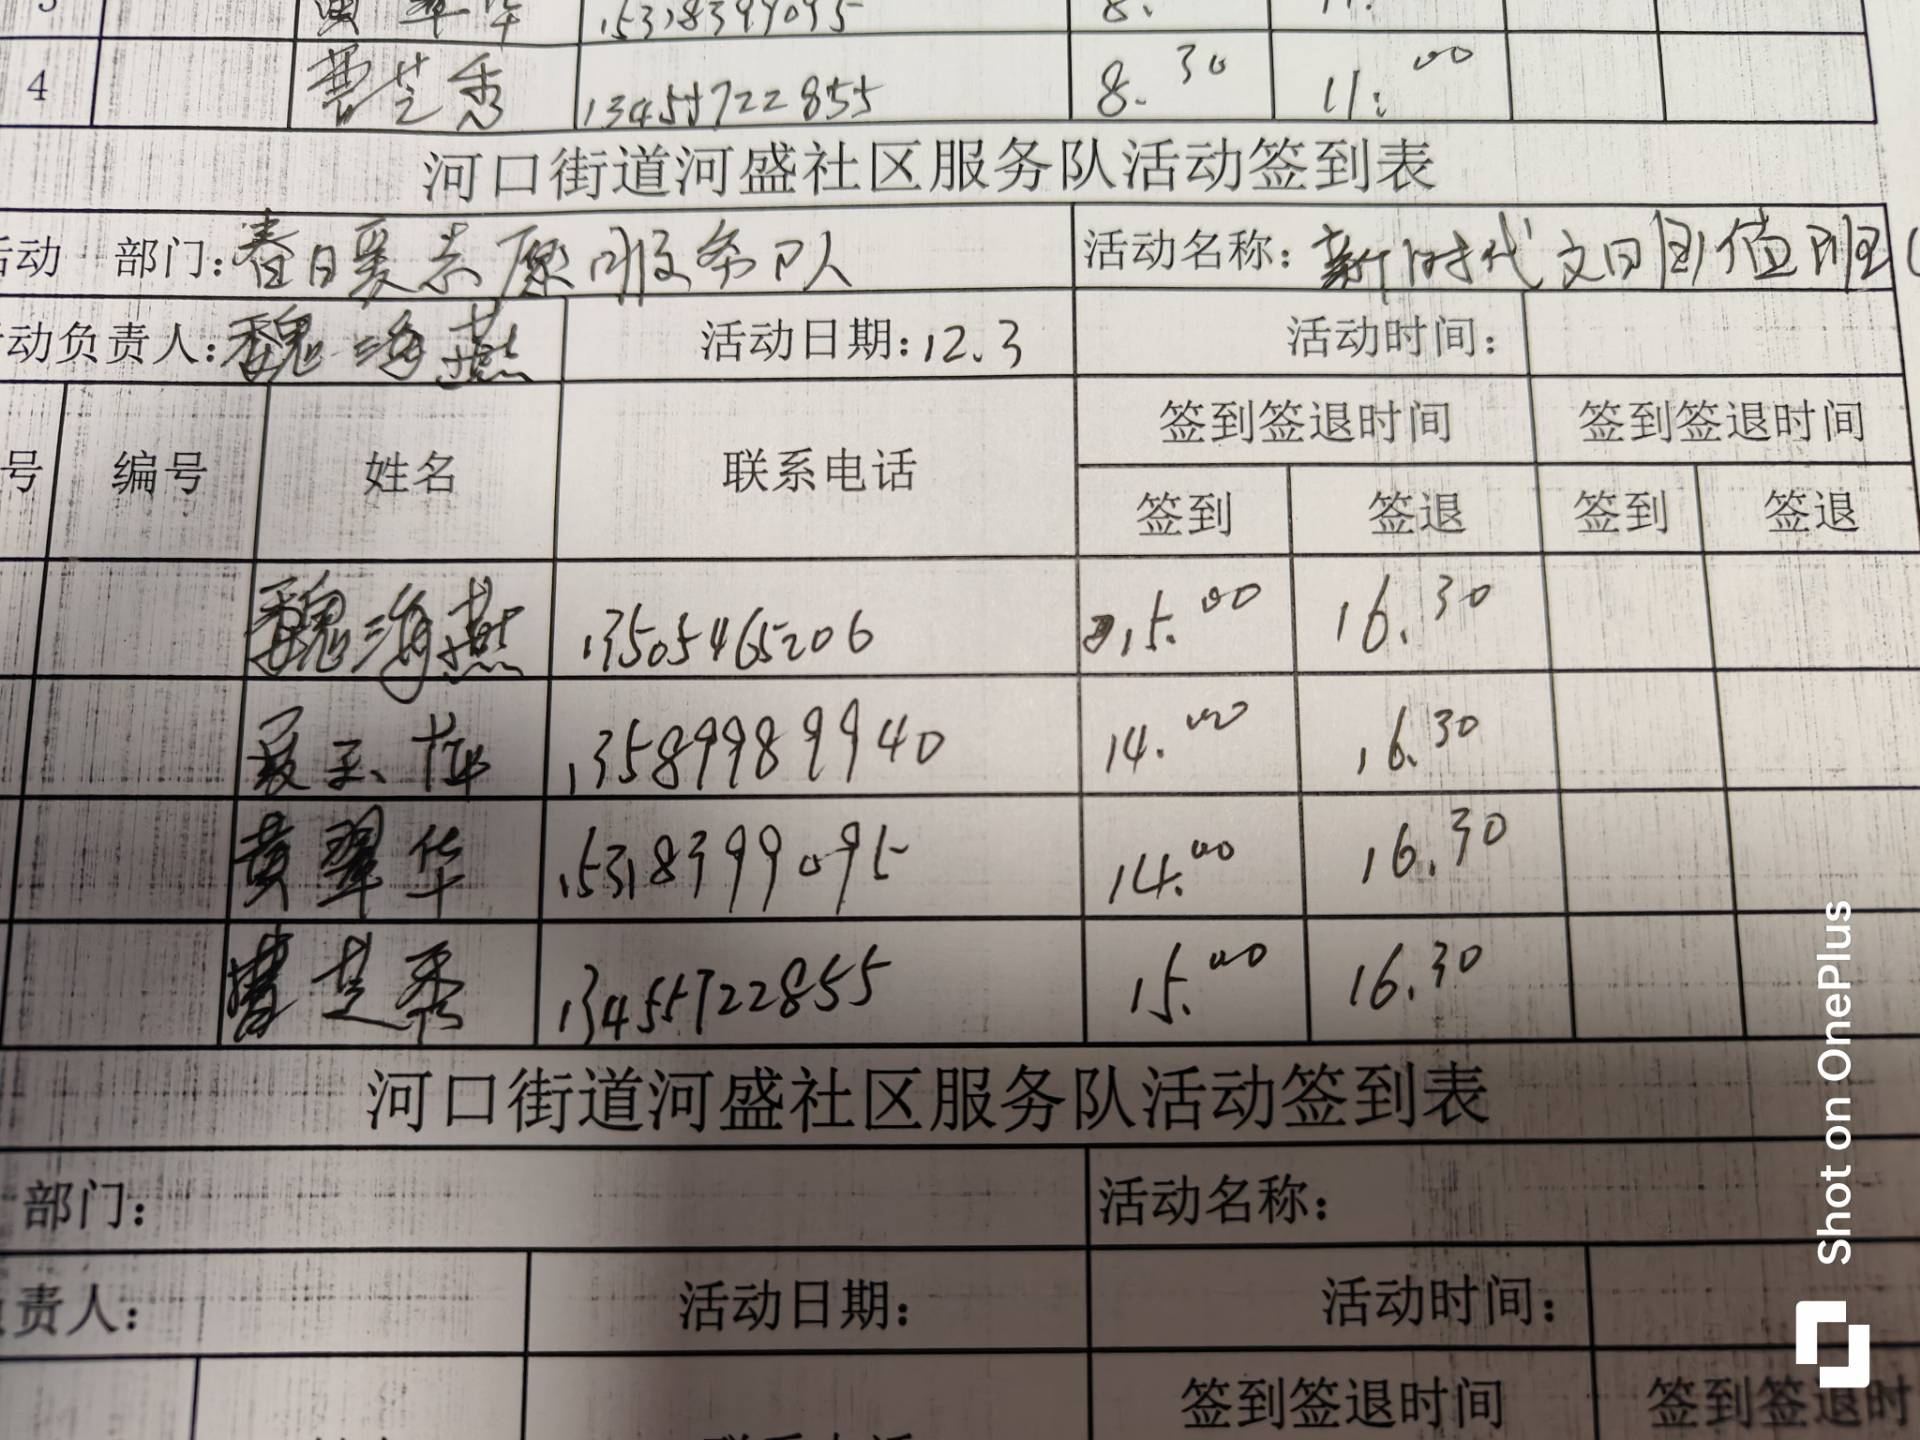 3 黄翠华 15318399095 8. 11.
4 曹芝秀 13455722855 8.30 11:00
河口街道河盛社区服务队活动签到表
活动 部门:春日爱志愿服务队 活动名称:新时代文明值班(
活动负责人:魏海燕 活动日期:12.3 活动时间:
签到签退时间 签到签退时间
号 编号 姓名 联系电话
签到 签退 签到 签退
魏海燕 13505465206 15.00 16.30
13589989940 14.00 16.30
黄翠华 15318399095 14.00 16.30
曹芝秀 13455722855 15.00 16.30
河口街道河盛社区服务队活动签到表
部门: 活动名称:
负责人: 活动日期: 活动时间:
签到签退时间 签到签退时
Shot on OnePlus